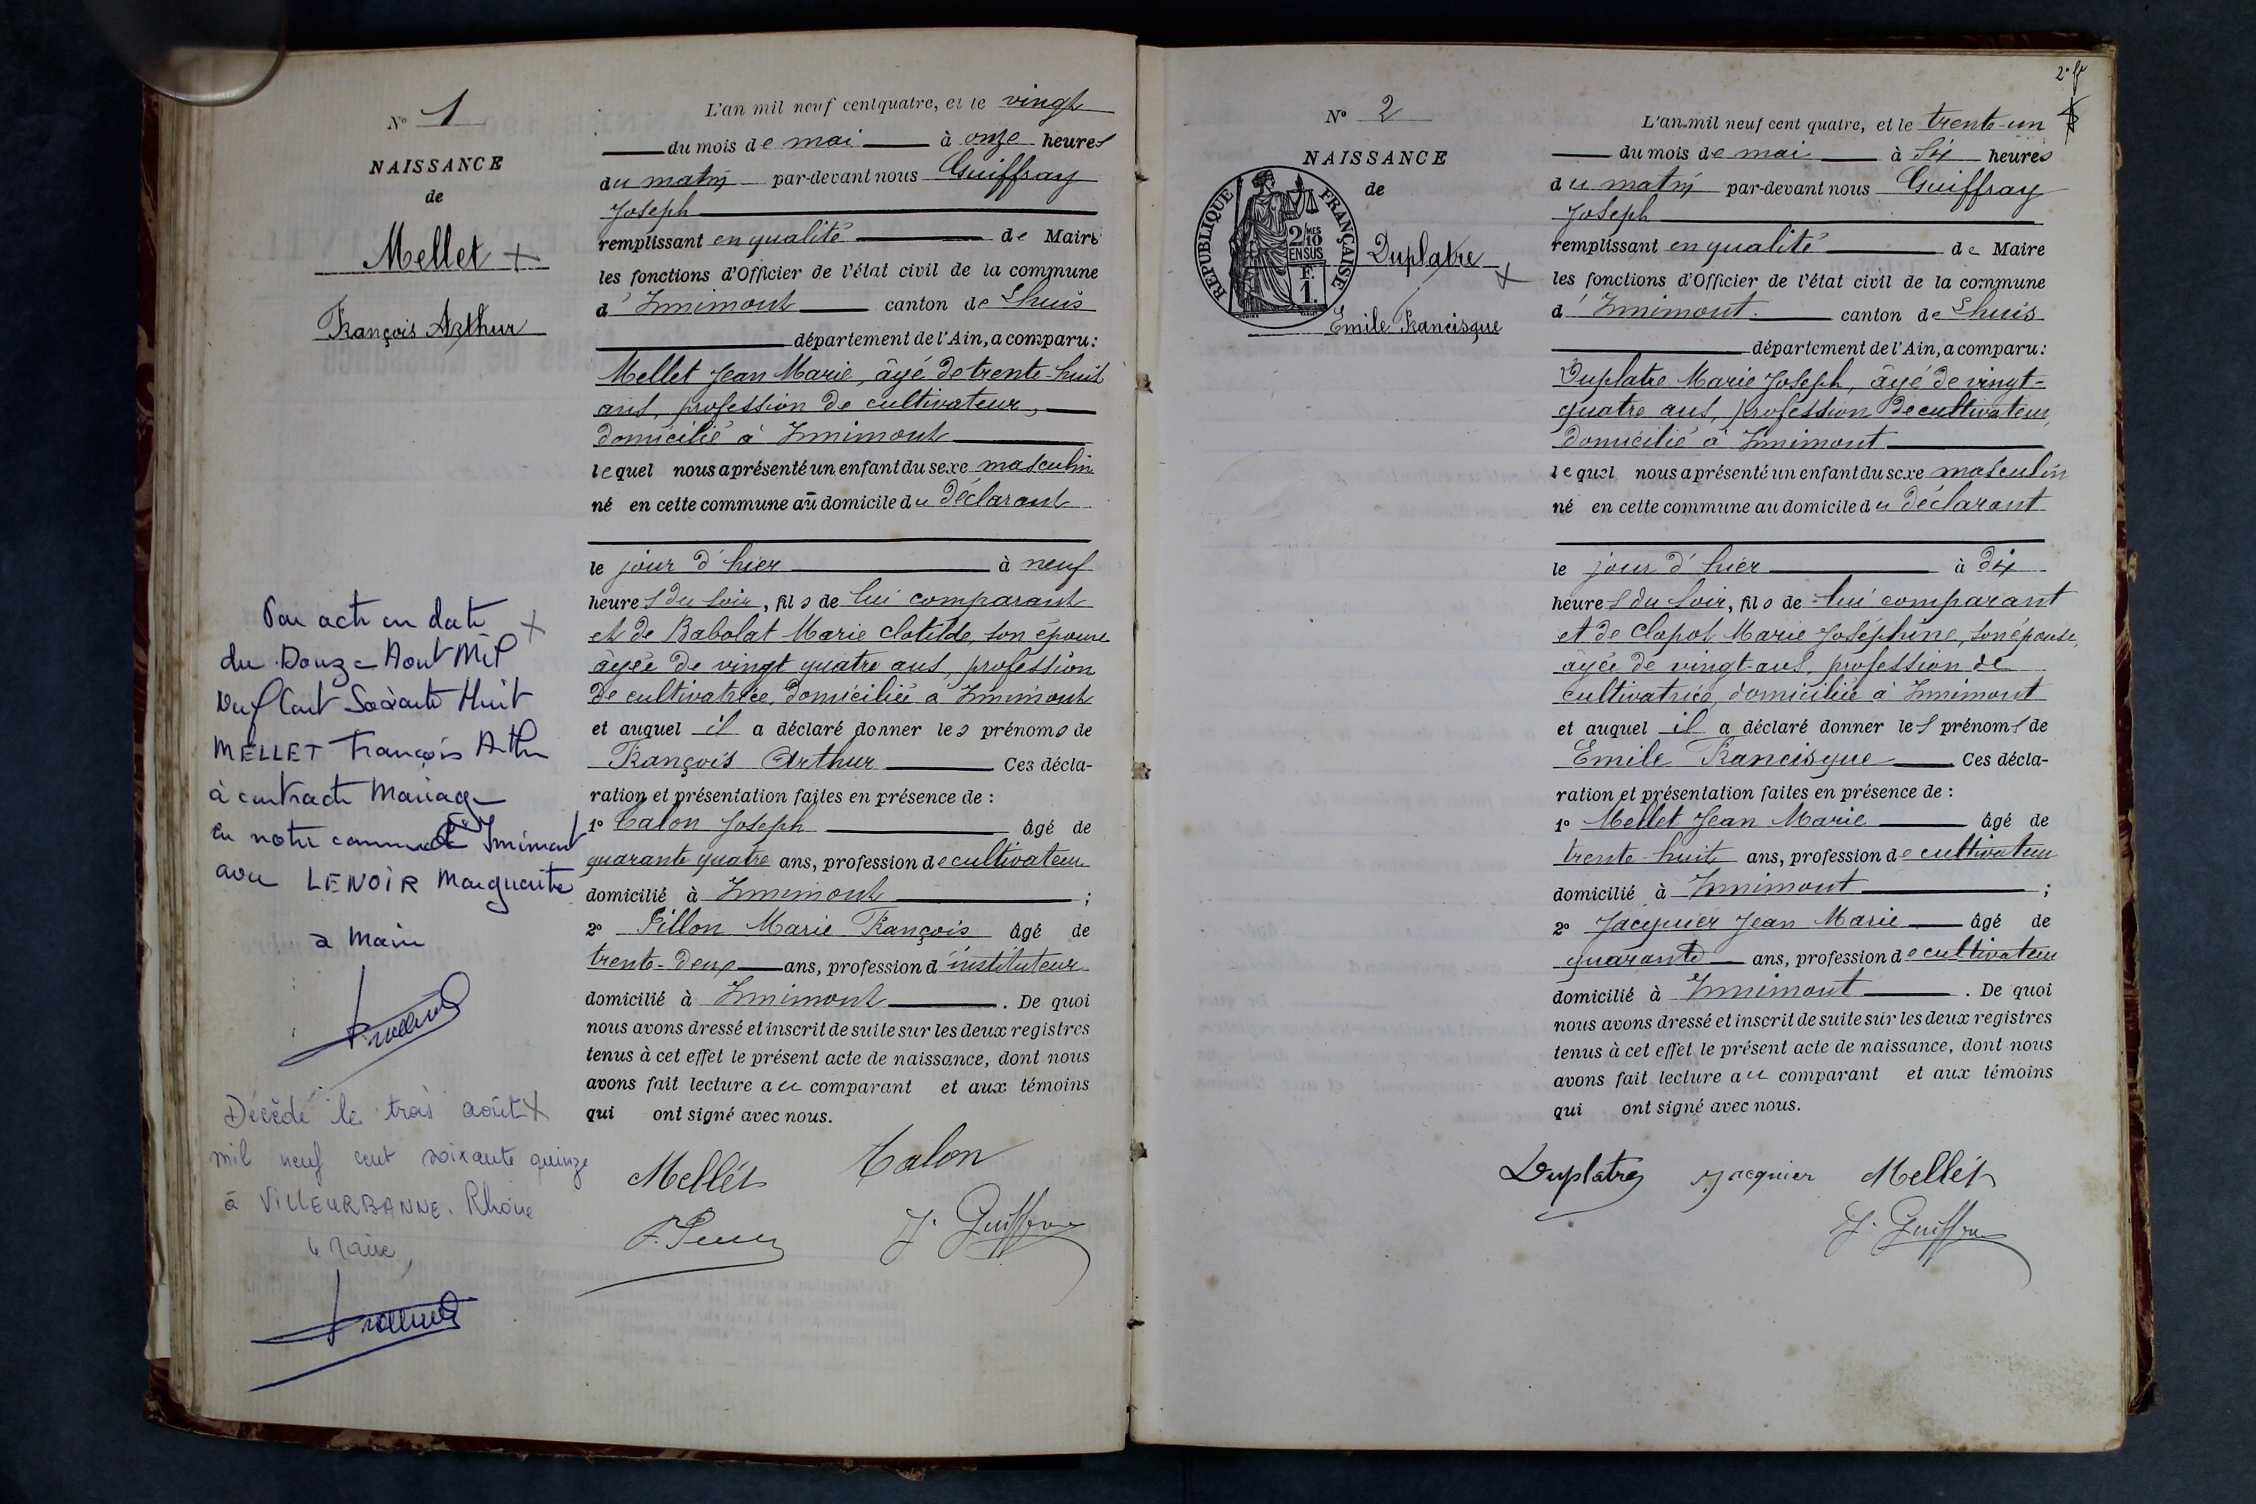 N° 1
NAISSANCE
de
Mellet +
François Arthur
Par acte en date +
du Douze Aout Mil
Neuf Cent Soixante Huit
MELLET François Arthur
à contracté Mariage
en notre commune d'Innimont
avec LENOIR Marguerite
Le Maire
Décédé le trois août +
mil neuf cent soixante quinze
à VILLEURBANNE. Rhône
le Maire,
L'an mil neuf cent quatre, et le vingt
du mois de mai à onze heures
du matin par-devant nous Guiffray
Joseph
remplissant en qualité de Maire
les fonctions d'Officier de l'état civil de la commune
d'Innimont canton de Lhuis
département de l'Ain, a comparu:
Mellet Jean Marie, âgé de trente-huit
ans, profession de cultivateur,
domicilié à Innimont
lequel nous a présenté un enfant du sexe masculin
né en cette commune au domicile du déclarant
le jour d'hier à neuf
heures du soir, fils de lui comparant
et de Babolat Marie Clotilde, son épouse
âgée de vingt quatre ans, profession
de cultivatrice, domiciliée à Innimont
et auquel il a déclaré donner les prénoms de
François Arthur Ces décla-
ration et présentation faites en présence de :
1° Calon Joseph âgé de
quarante quatre ans, profession de cultivateur
domicilié à Innimont ;
2° Fillon Marie François âgé de
trente-deux ans, profession d'instituteur
domicilié à Innimont . De quoi
nous avons dressé et inscrit de suite sur les deux registres
tenus à cet effet le présent acte de naissance, dont nous
avons fait lecture au comparant et aux témoins
qui ont signé avec nous.
Mellet Calon
J. Guiffray
2e f
N° 2
NAISSANCE
de
RÉPUBLIQUE FRANÇAISE
2/10 MES
EN SUS
1 F.
Duplatre +
Emile Francisque
L'an mil neuf cent quatre, et le trente-un
du mois de mai à six heures
du matin par-devant nous Guiffray
Joseph
remplissant en qualité de Maire
les fonctions d'Officier de l'état civil de la commune
d'Innimont canton de Lhuis
département de l'Ain, a comparu:
Duplatre Marie Joseph, âgé de vingt-
quatre ans, profession de cultivateur,
domicilié à Innimont
lequel nous a présenté un enfant du sexe masculin
né en cette commune au domicile du déclarant
le jour d'hier à dix
heures du soir, fils de lui comparant
et de Clapot Marie Joséphine, son épouse,
âgée de vingt-ans, profession de
cultivatrice, domiciliée à Innimont
et auquel il a déclaré donner les prénoms de
Emile Francisque Ces décla-
ration et présentation faites en présence de :
1° Mellet Jean Marie âgé de
trente-huit ans, profession de cultivateur
domicilié à Innimont ;
2° Jacquier Jean Marie âgé de
quarante ans, profession de cultivateur
domicilié à Innimont . De quoi
nous avons dressé et inscrit de suite sur les deux registres
tenus à cet effet le présent acte de naissance, dont nous
avons fait lecture au comparant et aux témoins
qui ont signé avec nous.
Duplatre Jacquier Mellet
J. Guiffray